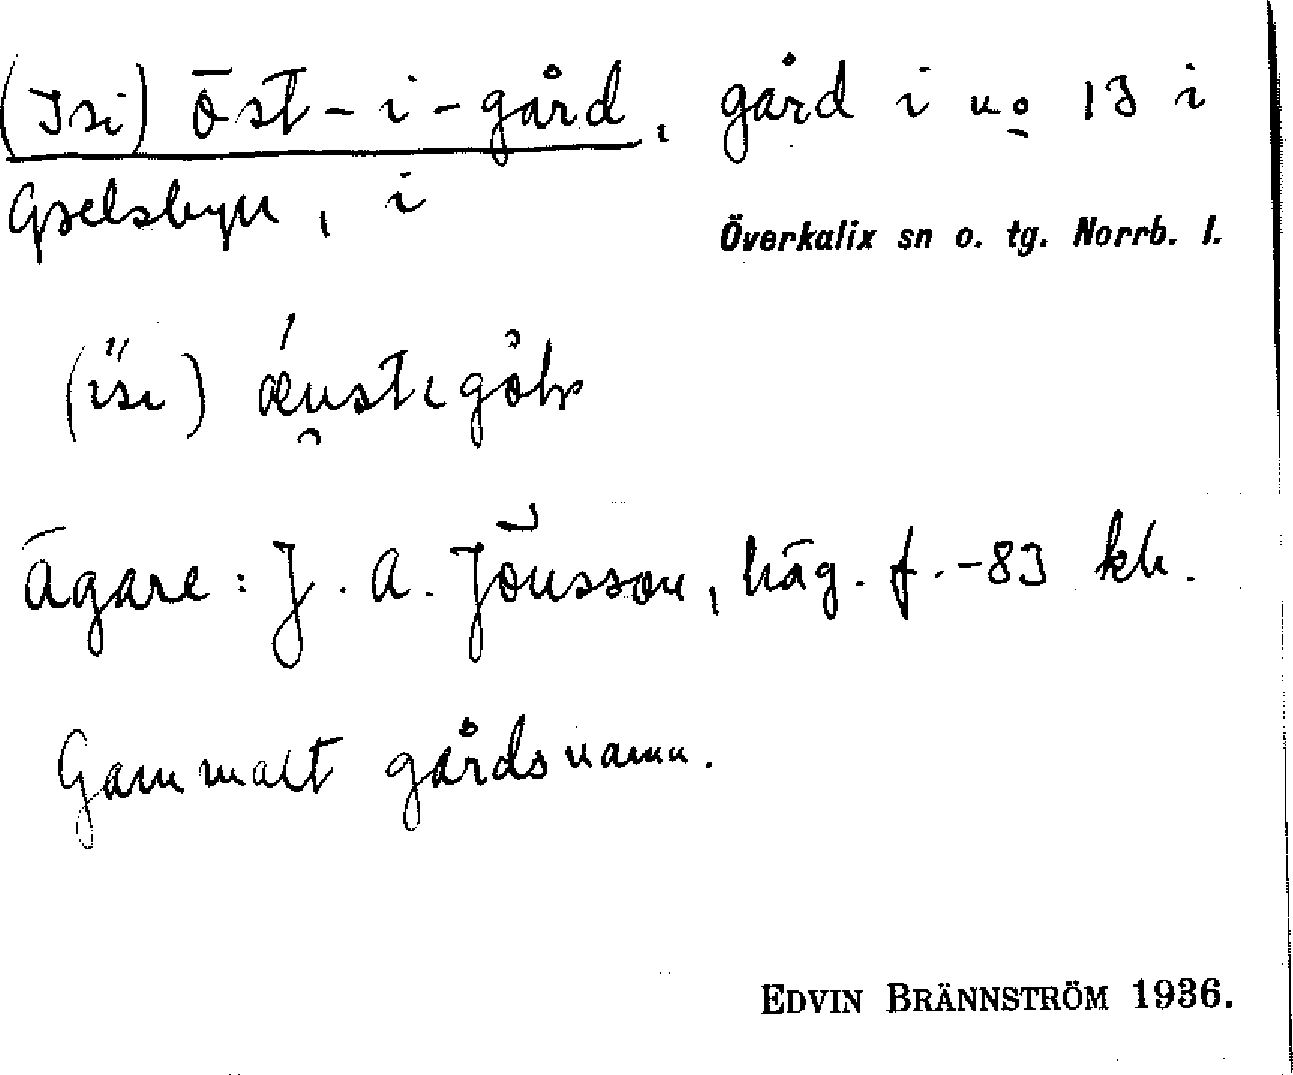 (Isi) Öst-i-gård, gård i no 13 i
Gyelsbyn, i
Överkalix sn o. tg. Norrb. l.
(isi) æustigålr
Ägare: J. A. Jönsson, häg. f. -83 kh.
Gammalt gårdsnamn.
EDVIN BRÄNNSTRÖM 1936.